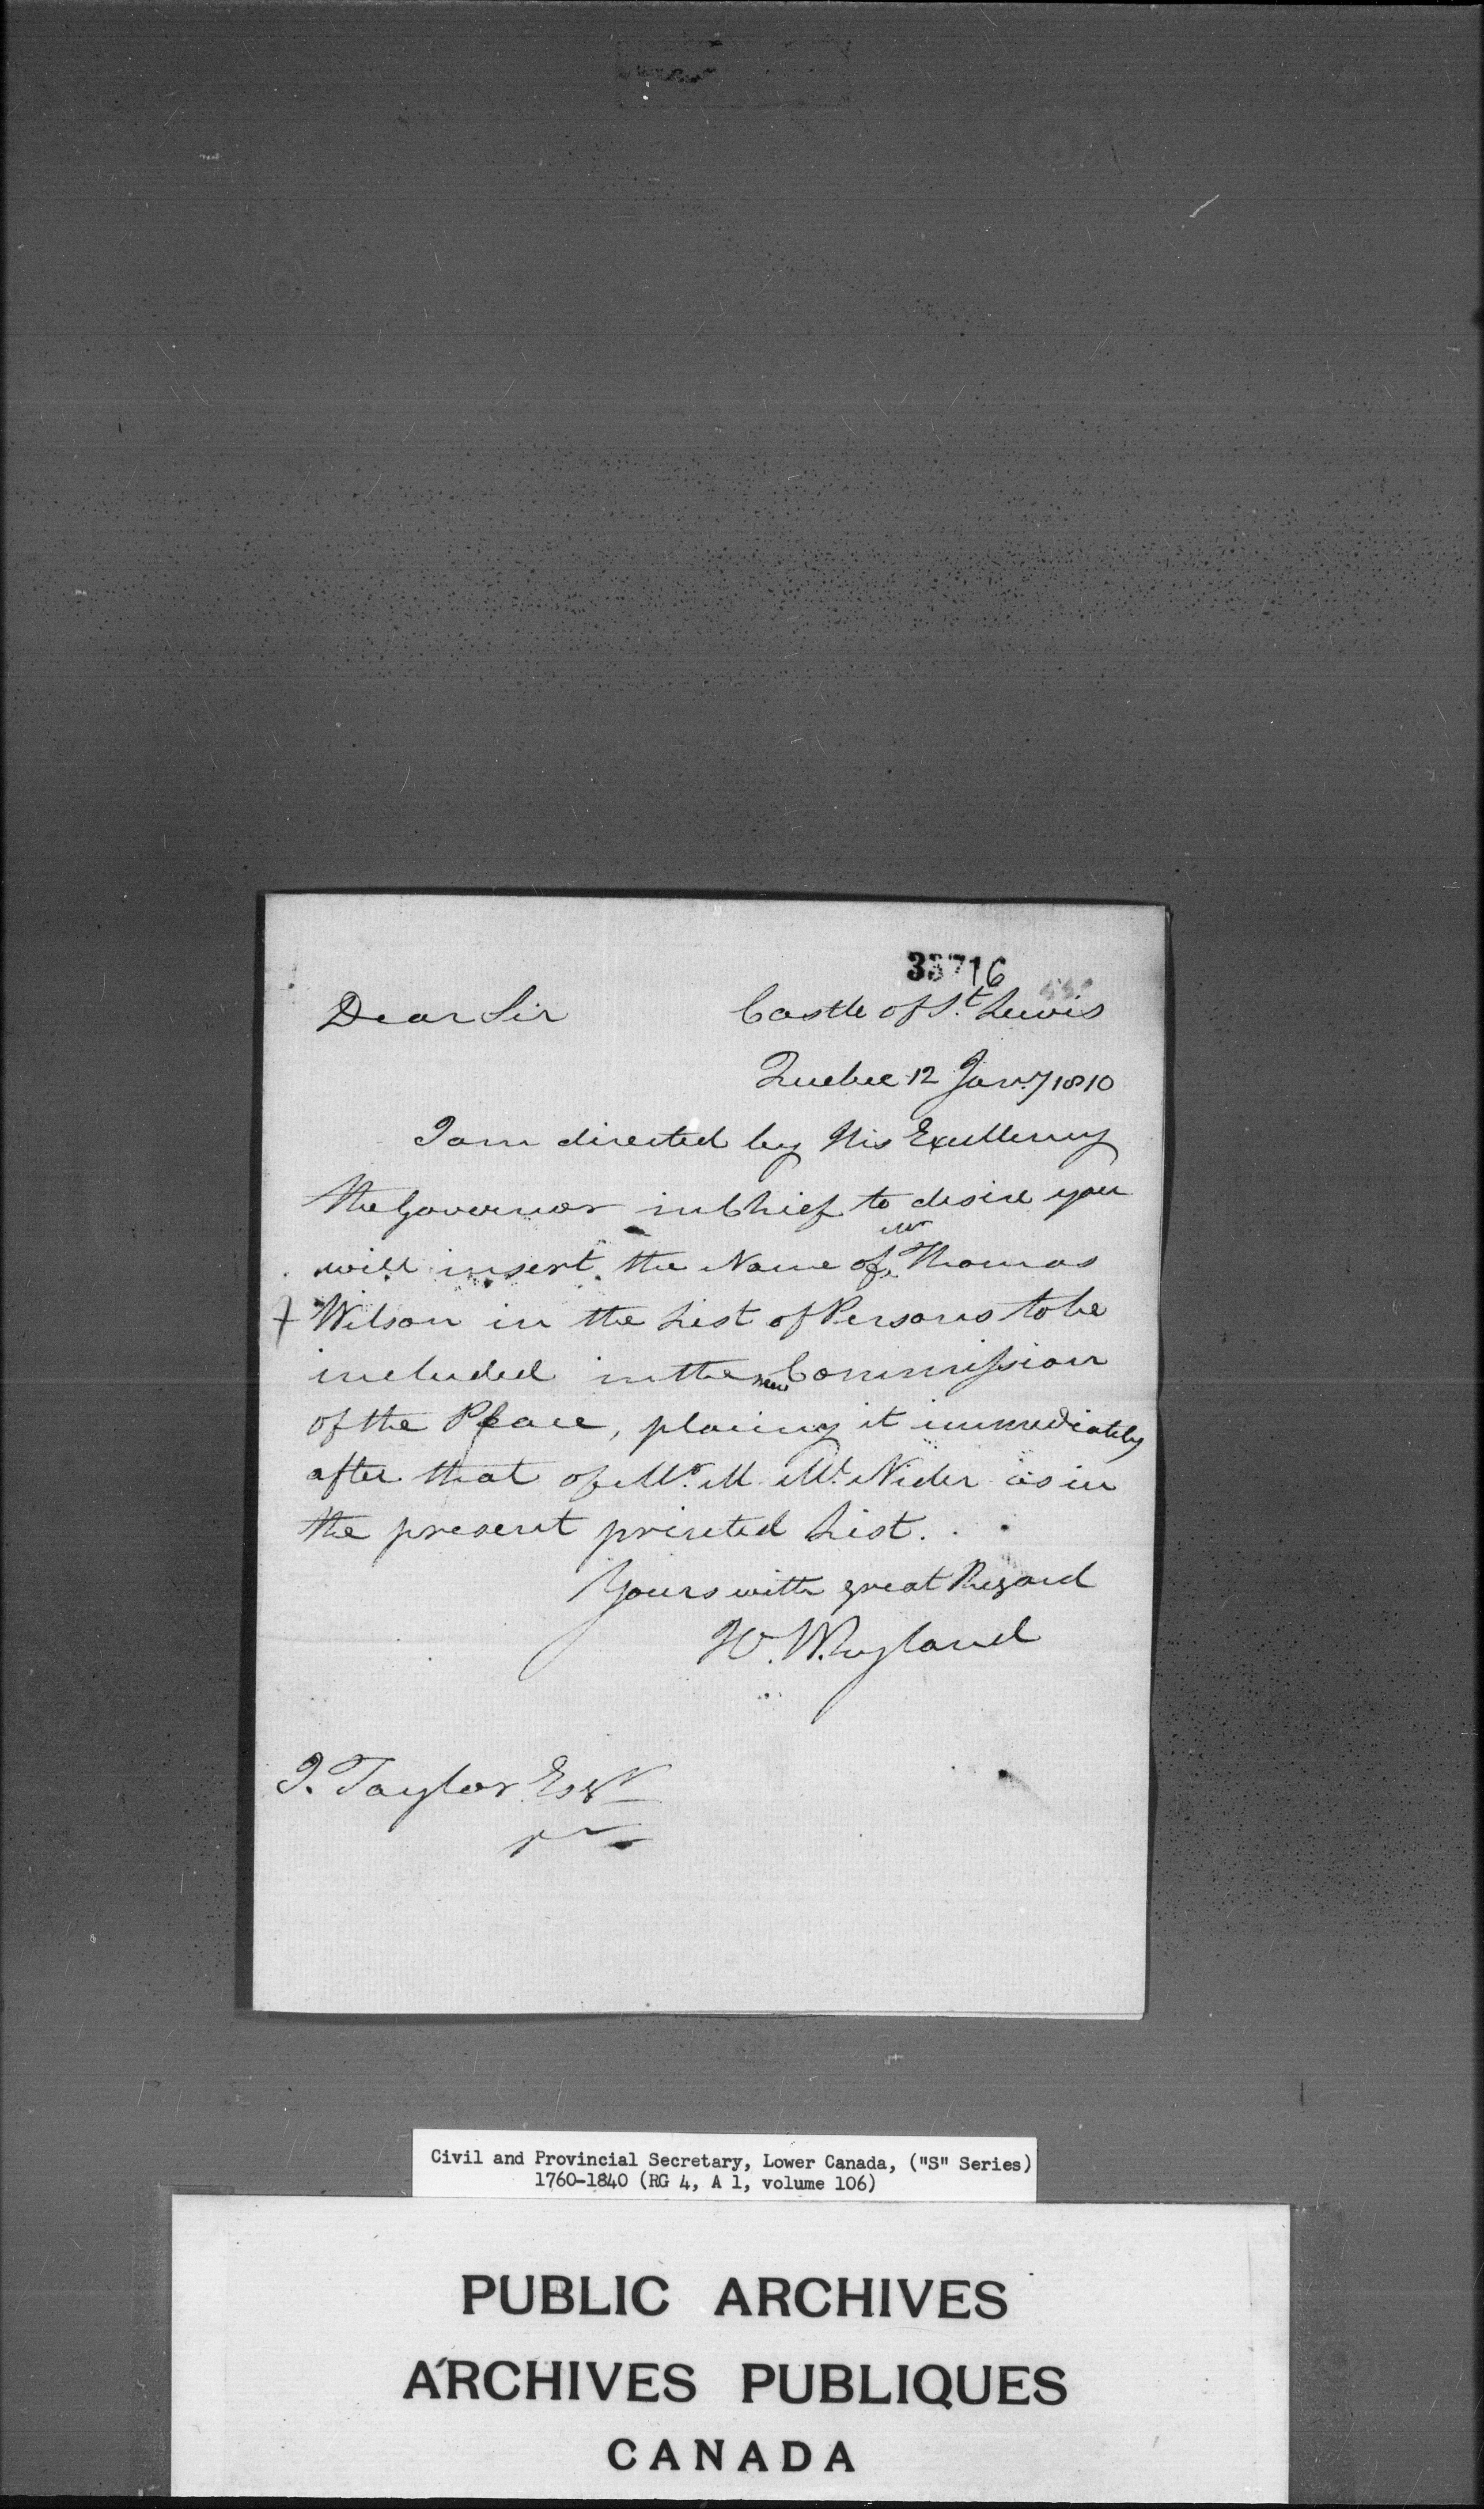 33716
Dear Sir Castle of St. Lewis
Quebec 12 Jany 1810
I am directed by His Excellency
the Governor in Chief to desire you
will insert the Name of Mr Thomas
Wilson in the List of Persons to be
included in the new Commission
of the Peace, placing it immediately
after that of Mr. M Mc. Nider as in
the present printed List.
Yours with great Regard
H. W. Ryland
T. Taylor Esqr
Civil and Provincial Secretary, Lower Canada, ("S" Series)
1760-1840 (RG 4, A 1, volume 106)
PUBLIC ARCHIVES
ARCHIVES PUBLIQUES
CANADA